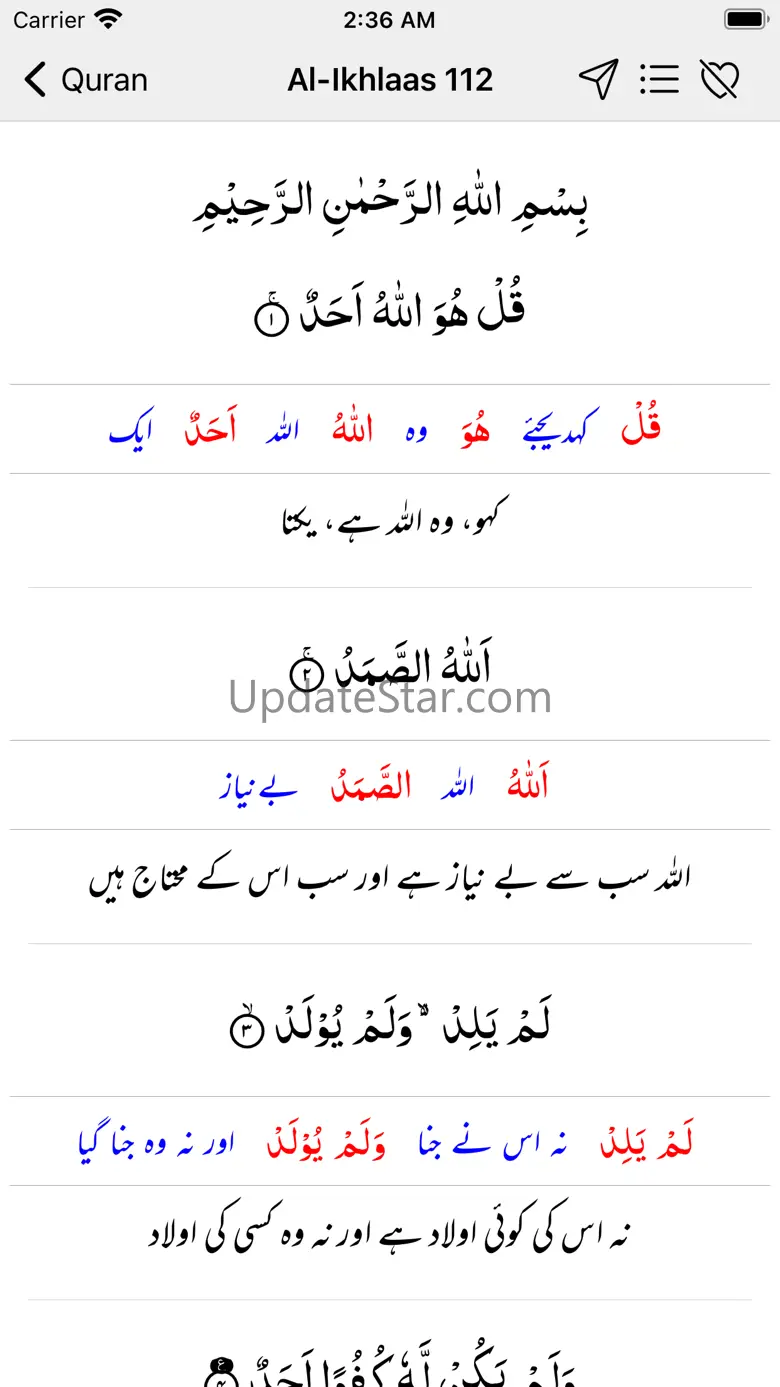 Carrier 2:36 AM
Quran Al-Ikhlaas 112
بِسْمِ اللّٰهِ الرَّحْمٰنِ الرَّحِيْمِ
قُلْ هُوَ اللّٰهُ اَحَدٌ ۚ ١
قُلْ کہدیجئے هُوَ وہ اللّٰهُ اللہ اَحَدٌ ایک
کہو، وہ اللہ ہے، یکتا
اَللّٰهُ الصَّمَدُ ۚ ٢
UpdateStar.com
اَللّٰهُ اللہ الصَّمَدُ بےنیاز
اللہ سب سے بے نیاز ہے اور سب اس کے محتاج ہیں
لَمْ يَلِدْ ۙ وَلَمْ يُوْلَدْ ۙ ٣
لَمْ يَلِدْ نہ اس نے جنا وَلَمْ يُوْلَدْ اور نہ وہ جنا گیا
نہ اس کی کوئی اولاد ہے اور نہ وہ کسی کی اولاد
وَلَمْ يَكُنْ لَّهٗ كُفُوًا اَحَدٌ